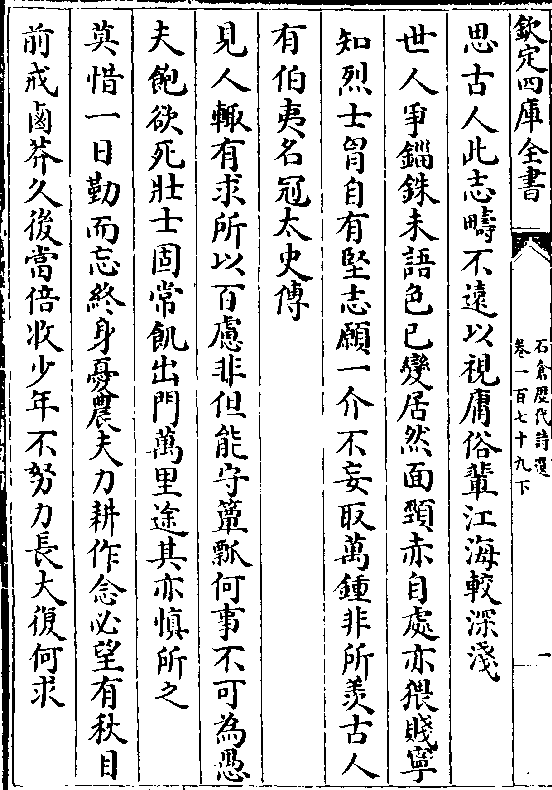 欽定四庫全書
石倉歷代詩選
卷一百七十九下
一
思古人此志疇不遠以視庸俗輩江海較深淺
世人爭錙銖未語色已變居然面頸赤自處亦猥賤寧
知烈士胷自有堅志願一介不妄取萬鍾非所羨古人
有伯夷名冠太史傳
見人輙有求所以百慮非但能守簞瓢何事不可為愚
夫飽欲死壯士固常飢出門萬里途其亦慎所之
莫惜一日勤而忘終身憂農夫力耕作念必望有秋目
前戒鹵莽久後當倍收少年不努力長大復何求